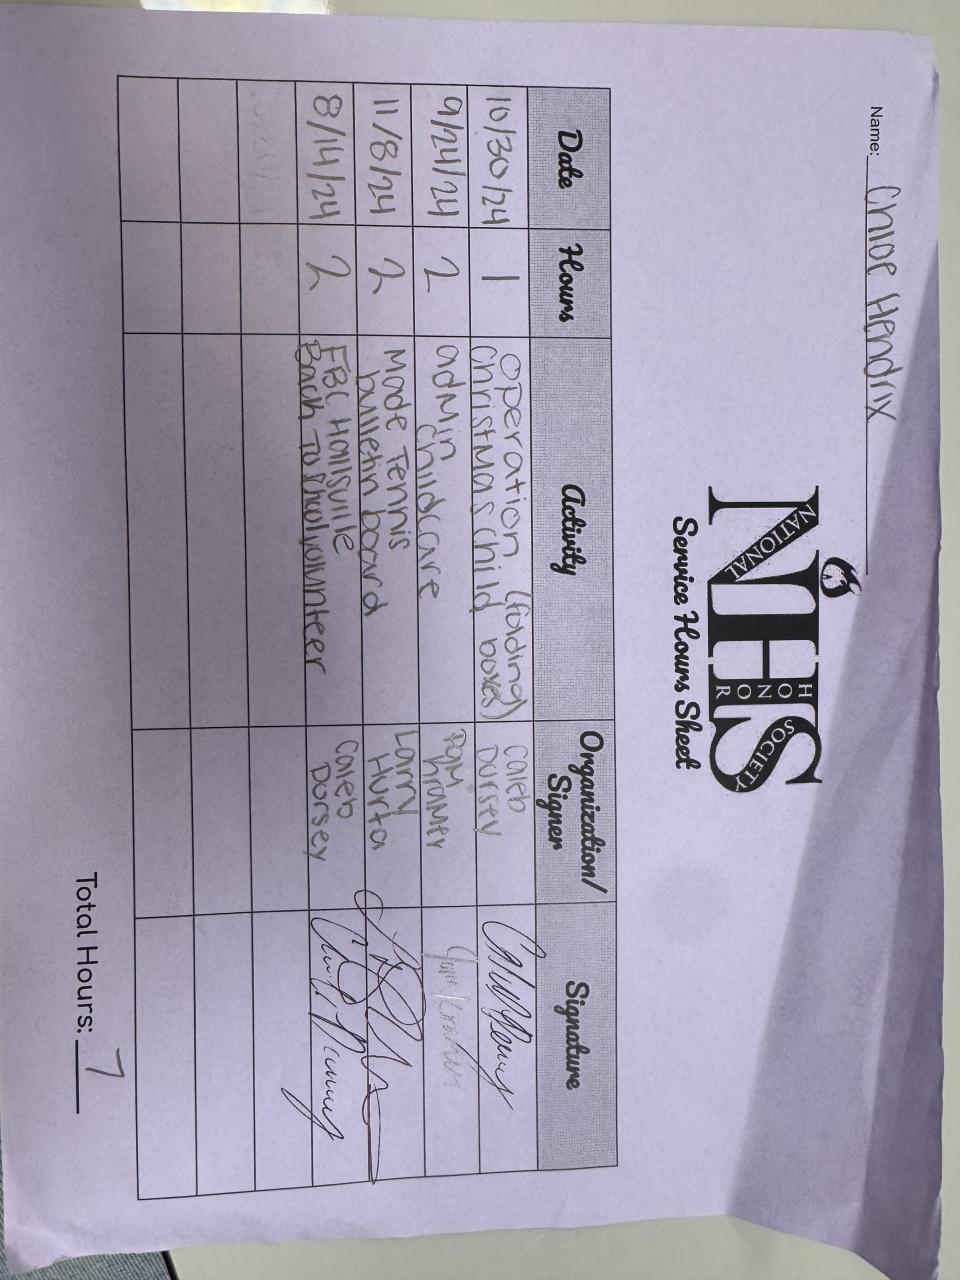 Name: Chloe Hendrix
NATIONAL HONOR SOCIETY
NHS
Service Hours Sheet
Date Hours Activity Organization/ Signer Signature
10/30/24 1 Operation (folding Christmas child boxes) Caleb Dorsey
9/24/24 2 admin childcare Pam Kramer
11/8/24 2 Made Tennis bulletin board Larry Hurta
8/14/24 2 FBC Hallsville Back To School volunteer Caleb Dorsey
Total Hours: 7